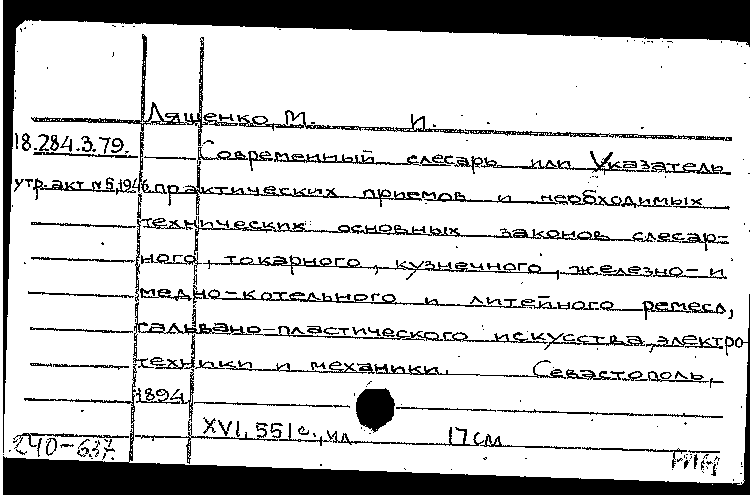 Лященко, М. И.
18.284.3.79. Современный слесарь или Указатель
утр. акт №5, 1946 практических приемов и необходимых
технических основных законов слесар-
ного, токарного, кузнечного, железно- и
медно-котельного и литейного ремесл,
гальвано-пластического искусства, электро-
техники и механики. Севастополь,
1894
XVI, 551 с., ил 17 см
240-637.